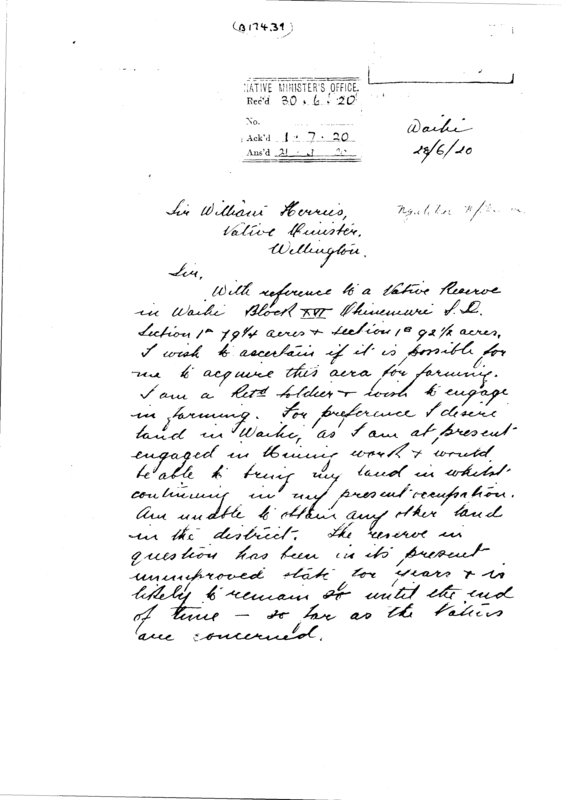 (B1743g)
NATIVE MINISTER'S OFFICE.
Rec'd 30.6.20
No.
Ack'd 1.7.20
Ans'd 21 20
Waihi
28/6/20
Sir William Herries,
Native Minister.
Wellington.
Sir,
With reference to a Native Reserve
in Waihi Block XVI Ohinemuri S.D.
Section 1A 79¼ acres + section 1B 92½ acres,
I wish to ascertain if it is possible for
me to acquire this aera for farming.
I am a Retd soldier + wish to engage
in farming. For preference I desire
land in Waihi, as I am at present
engaged in Mining work + would
be able to bring my land in whilst
continuing in my present occupation.
Am unable to obtain any other land
in the district. The reserve in
question has been in its present
unimproved state for years + is
likely to remain so until the end
of time — so far as the Natives
are concerned.